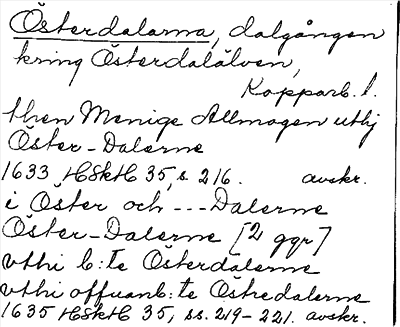 Österdalarna, dalgången
kring Österdalälven,
Kopparb. l.
then Menige Allmogen uthj
Öster-Dalerne
1633 HSkH 35, s. 216. avskr.
i Öster och ---Dalerne
Öster-Dalerne [2 ggr]
vthi b:te Österdalerne
vthi offuanb:te Östredalerne
1635 HSkH 35, ss. 219-221. avskr.